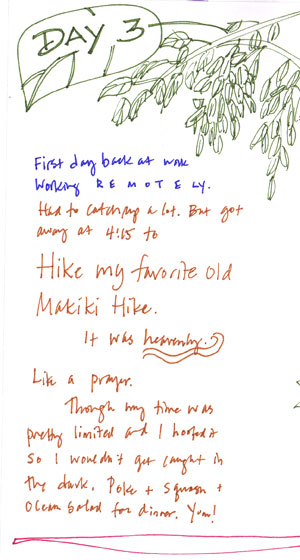 DAY 3
First day back at work
Working R E M O T E L Y.
Had to catch up a lot. But got
away at 4:15 to
Hike my favorite old
Makiki Hike.
It was heavenly.
Like a prayer.
Though my time was
pretty limited and I hoofed it
so I wouldn't get caught in
the dark. Poke + squash +
Ocean Salad for dinner. Yum!